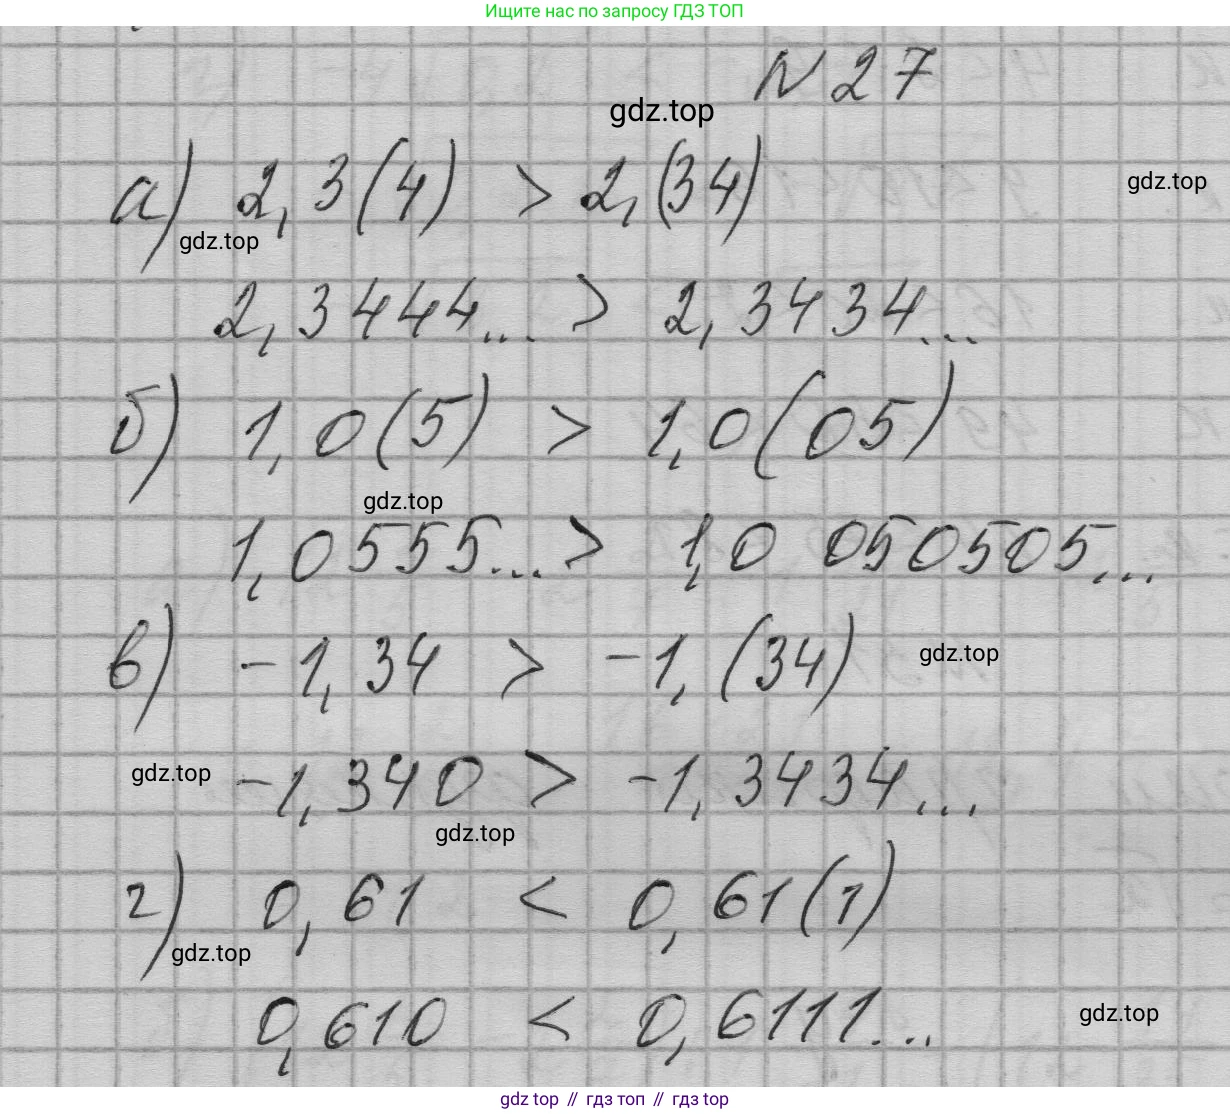 Ищите нас по запросу ГДЗ ТОП
N 27
gdz.top
а) 2,3(4) > 2,(34)
gdz.top
gdz.top
2,3444... > 2,3434...
б) 1,0(5) > 1,0(05)
gdz.top
1,0555... > 1,0 050505...
в) -1,34 > -1,(34)
gdz.top
gdz.top
-1,340 > -1,3434...
gdz.top
г) 0,61 < 0,61(1)
gdz.top
0,610 < 0,6111...
gdz.top
gdz top // гдз топ // гдз top